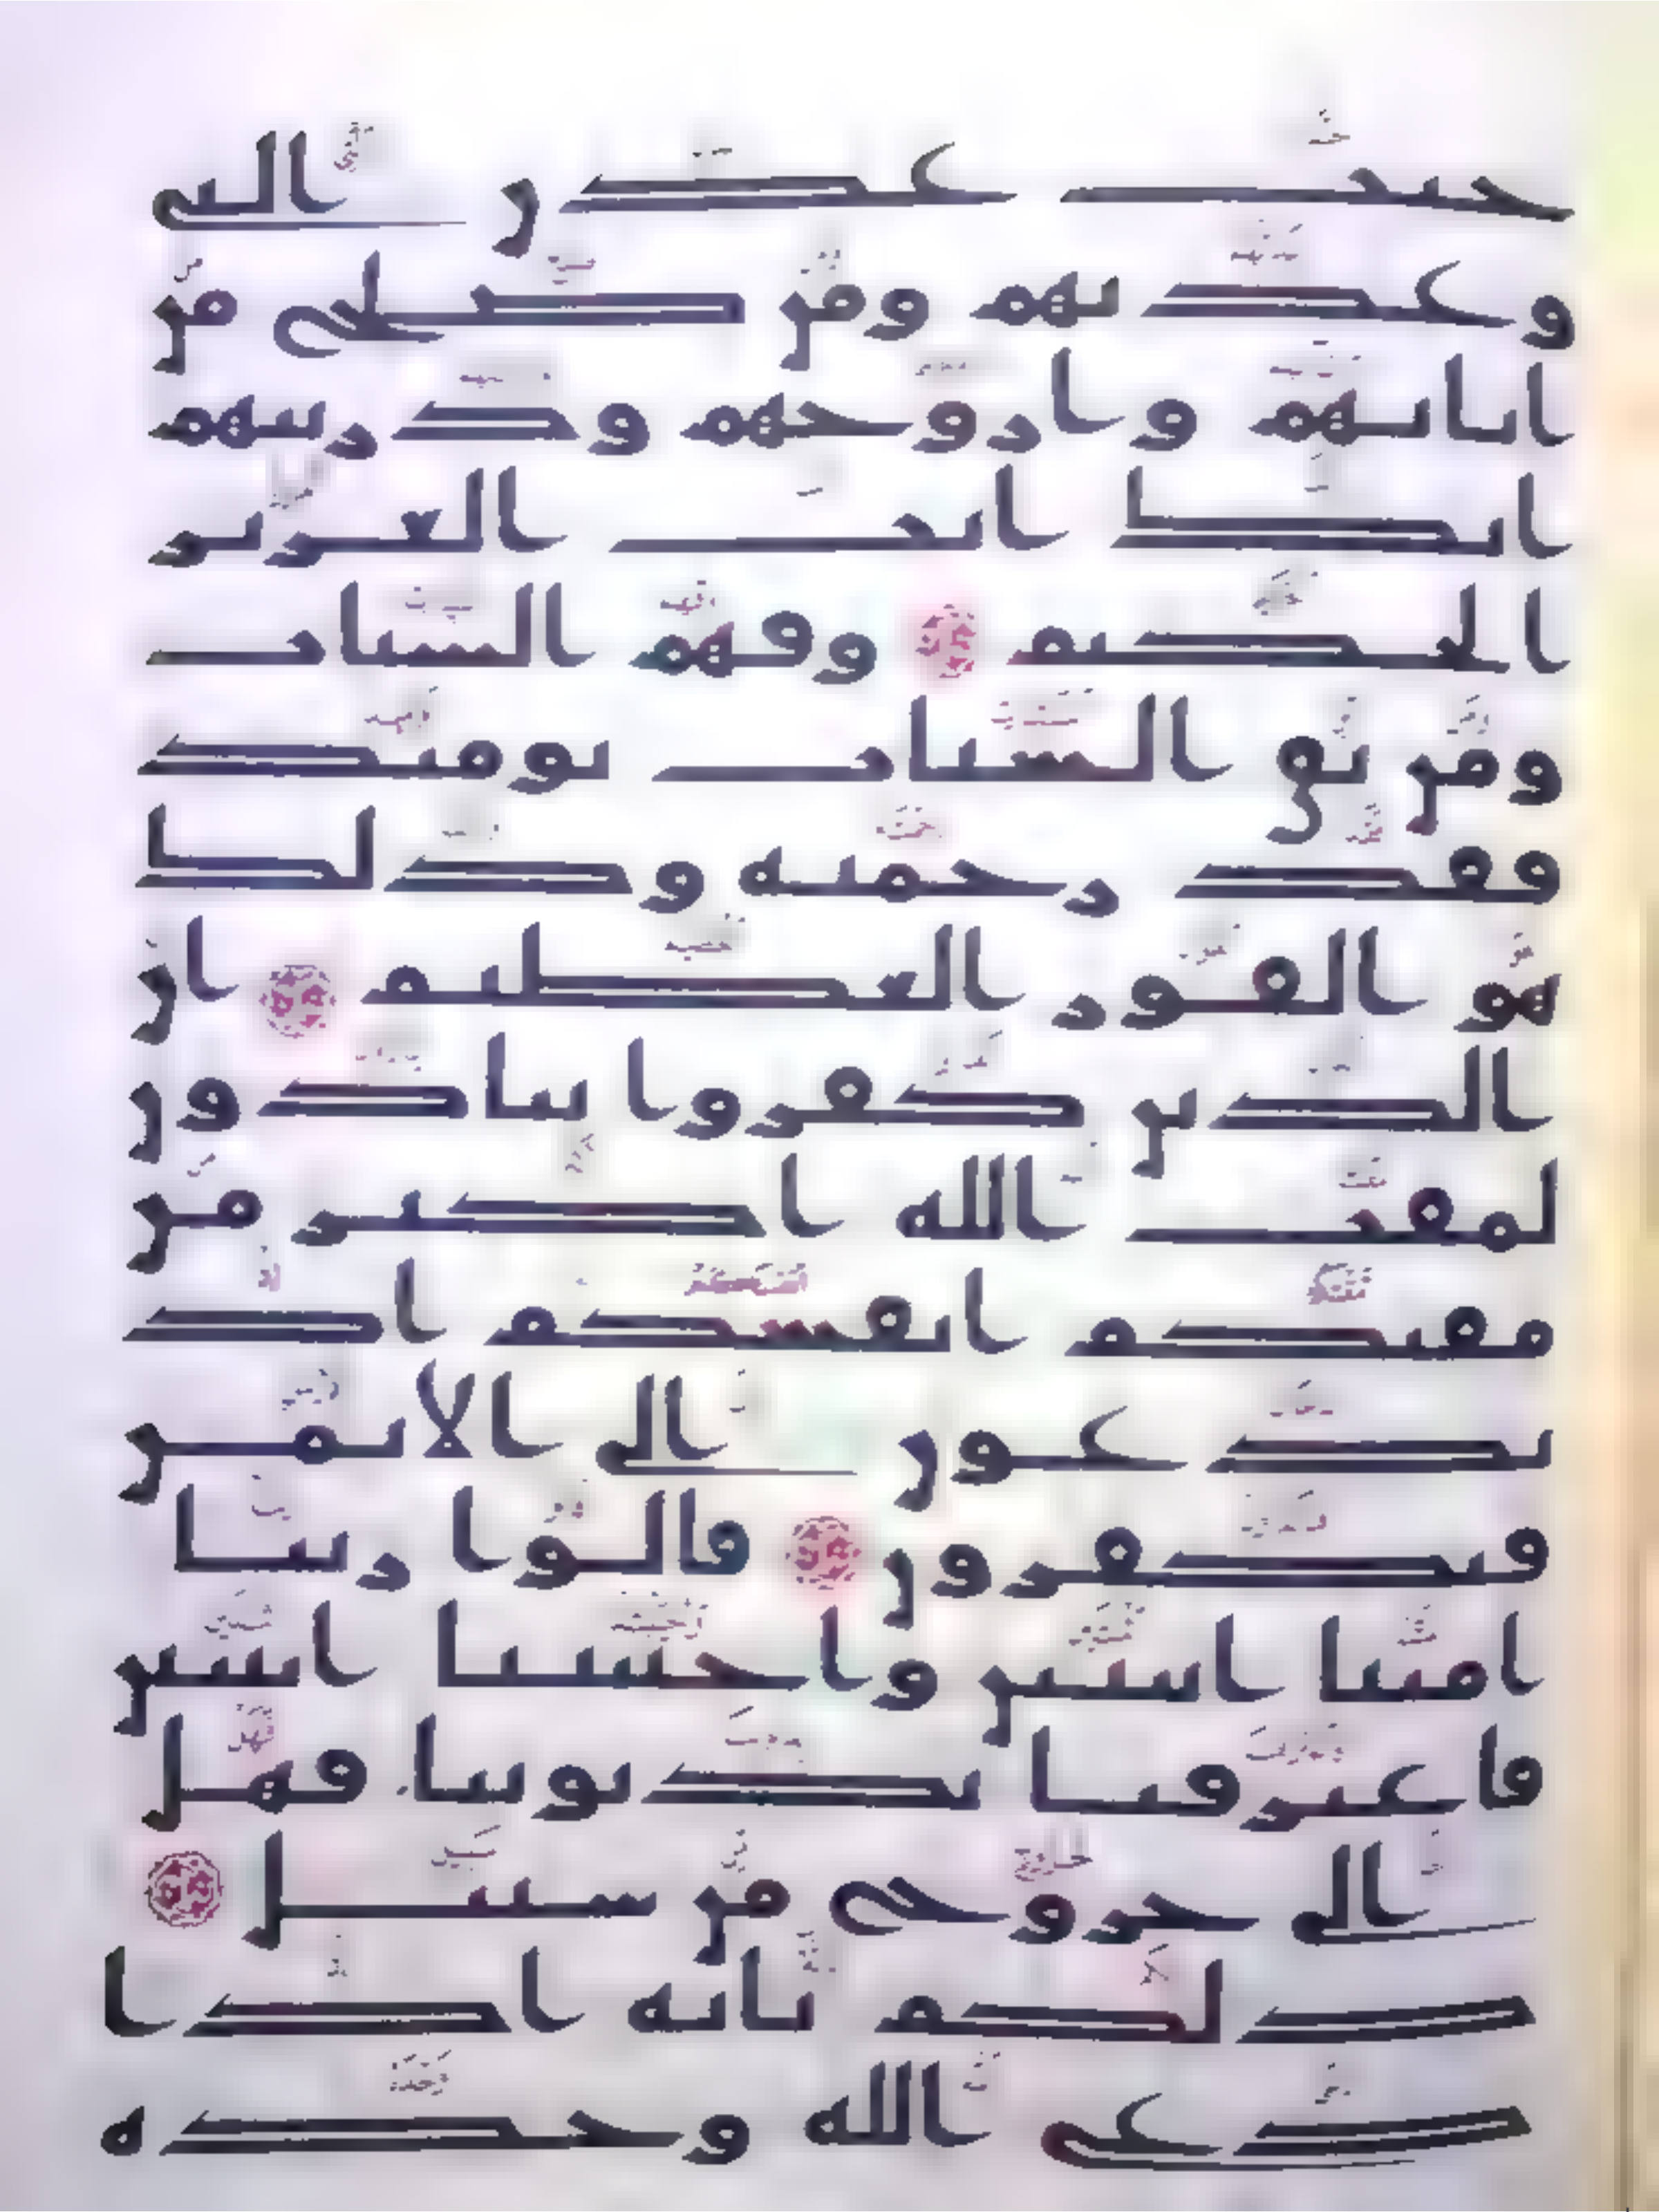 جنت عدن التي
وعدتهم ومن صلح من
ابائهم وازوجهم وذريتهم
انك انت العزيز
الحكيم وقهم السيات
ومن تق السيات يومئذ
فقد رحمته وذلك
هو الفوز العظيم ان
الذين كفروا ينادون
لمقت الله اكبر من
مقتكم انفسكم اذ
تدعون الى الايمن
فتكفرون قالوا ربنا
امتنا اثنتين واحييتنا اثنتين
فاعترفنا بذنوبنا فهل
الى خروج من سبيل
ذلكم بانه اذا
دعي الله وحده